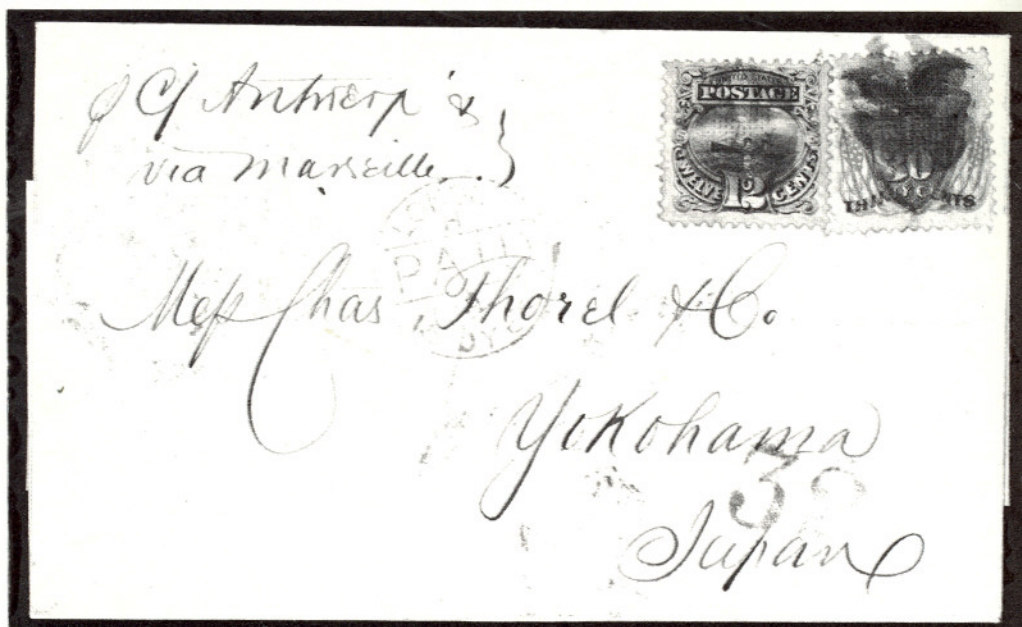 p C/ Antwerp &
via Marseille
UNITED STATES
POSTAGE
TWELVE 12 CENTS
30
PAID
Mess Chas Thorel & Co.
Yokohama
Japan